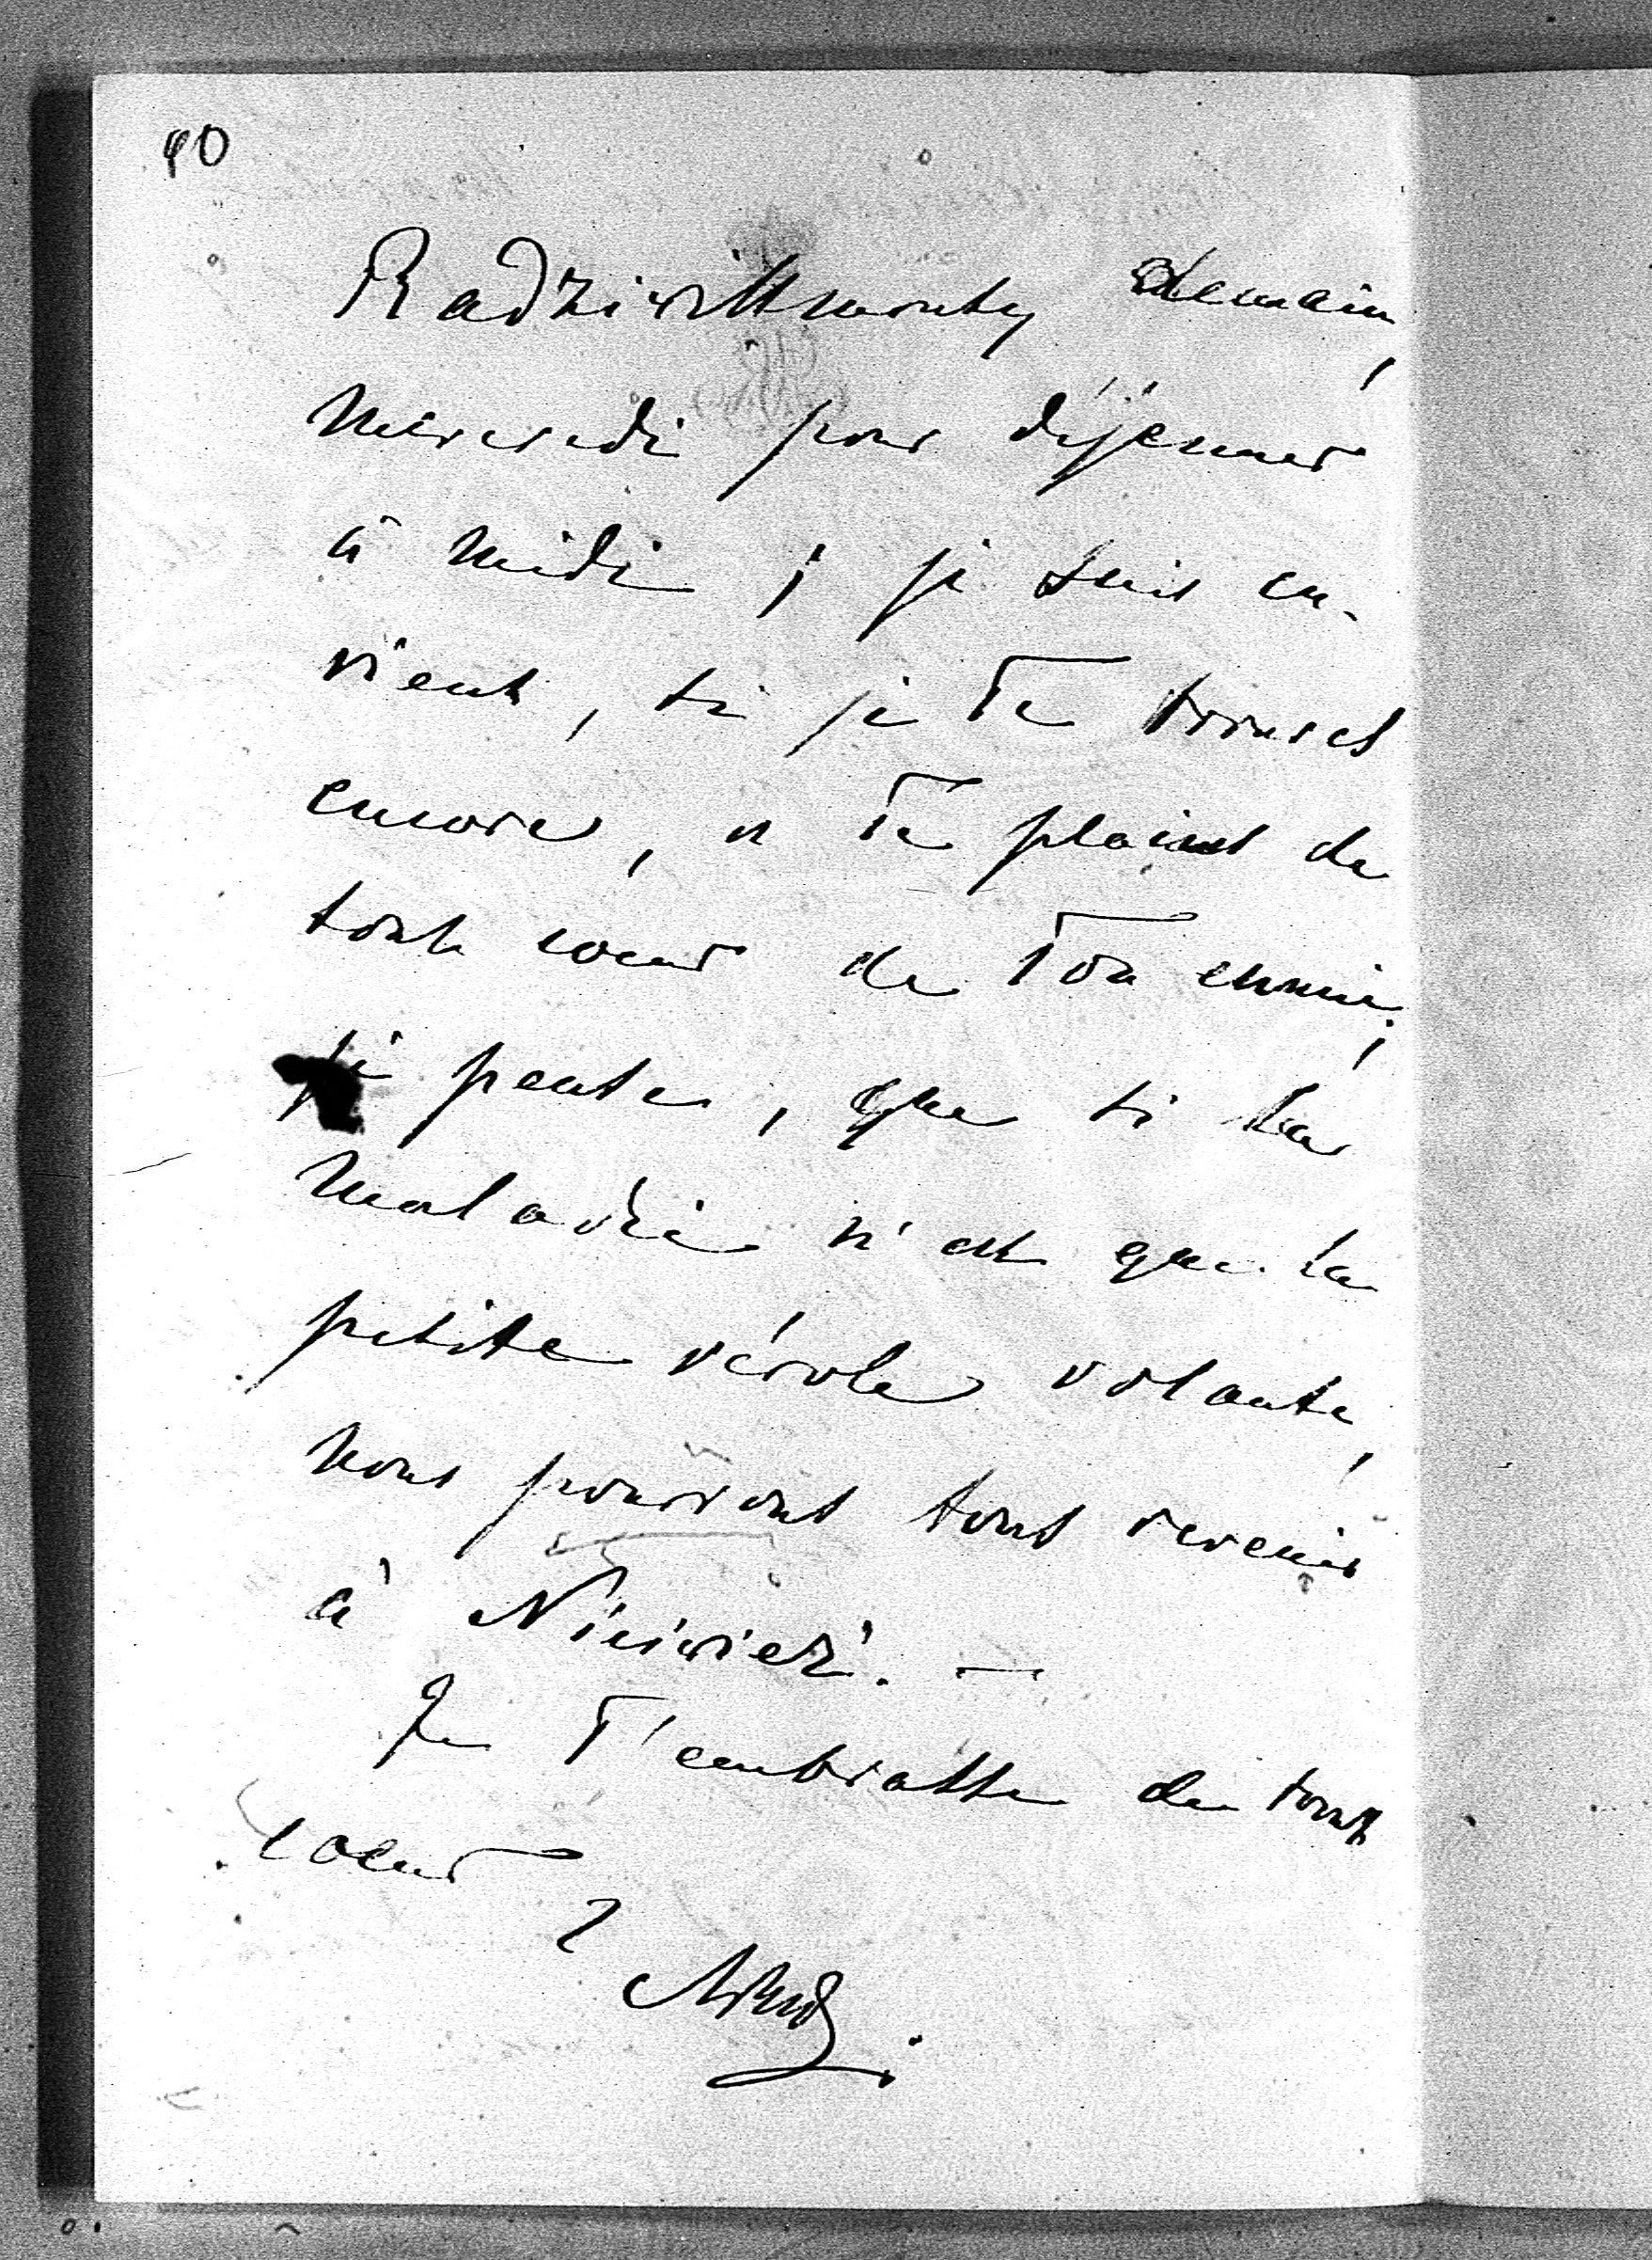 90
Radziwiłłmonty demain,
Mercredi pour déjeuner
à midi ; je suis cu-
rieux, si je Te trouves
encore, et Te plains de
tout coeur de Ton ennui;
je pense, que si la
maladie n'est que la
petite vérole volante,
nous pourrons tous revenir
à Nieśwież. —
Je T'embrasse de tout
coeur